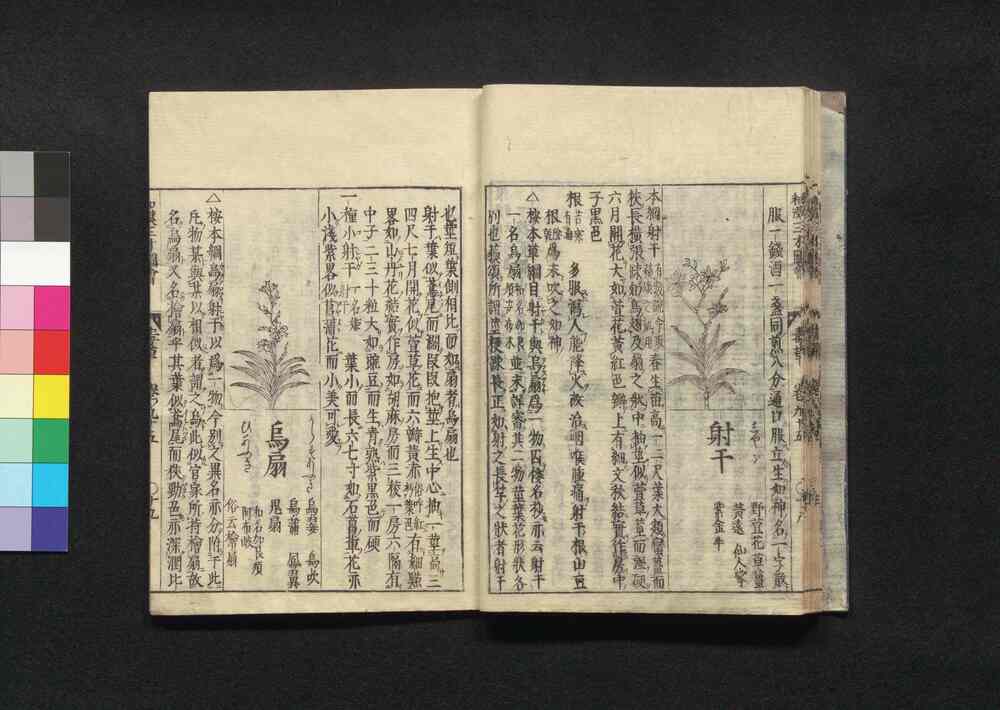 服一錢酒一盞同煎八分通口服立生如神名一字散
射干
しやかん
野萱花 草薑
黃遠 仙人掌
紫金牛
本綱射干
春生苗高一二尺葉大類蠻薑而
狹長橫張疎如鳥翅及扇之狀中抽莖似萱草莖而強硬
六月開花大如萱花黃紅色瓣上有細文秋結實作房中
子黑色
根 苦寒 有毒
多服瀉人能降火故治咽喉腫痛 射干根山豆
根 爲末吹之如神
△按本草綱目射干與烏扇爲一物四條名枚亦云射干
一名烏扇 並未詳審其二物莖葉花形狀各
別也 疎長正如射之長竿之狀者射干
也莖短葉側相比而如扇者烏扇也
射干葉似鳶尾而濶叚叚抱莖上生中心抽一莖高三
四尺七月開花似萱草花而六瓣黃赤 有細㸃
畧如山丹花 結實作房如胡麻房而三稜一房六隔有
中子二三十粒大如豌豆而生青熟紫黑色而硬
一種小射干 一名 葉小而長六七寸如石菖蒲花亦
小淺紫畧似菖蒲花而小美可愛
烏扇
ひあふぎ
烏翣 烏吹
烏蒲 鳳翼
鬼扇
俗云檜扇
△按本綱烏扇射干以爲一物今別之異名亦分附于此
凡物某與某以相似者謂之烏此似官家所持檜扇故
名烏扇又名檜扇乎其葉似鳶尾而狹勁色亦深潤比